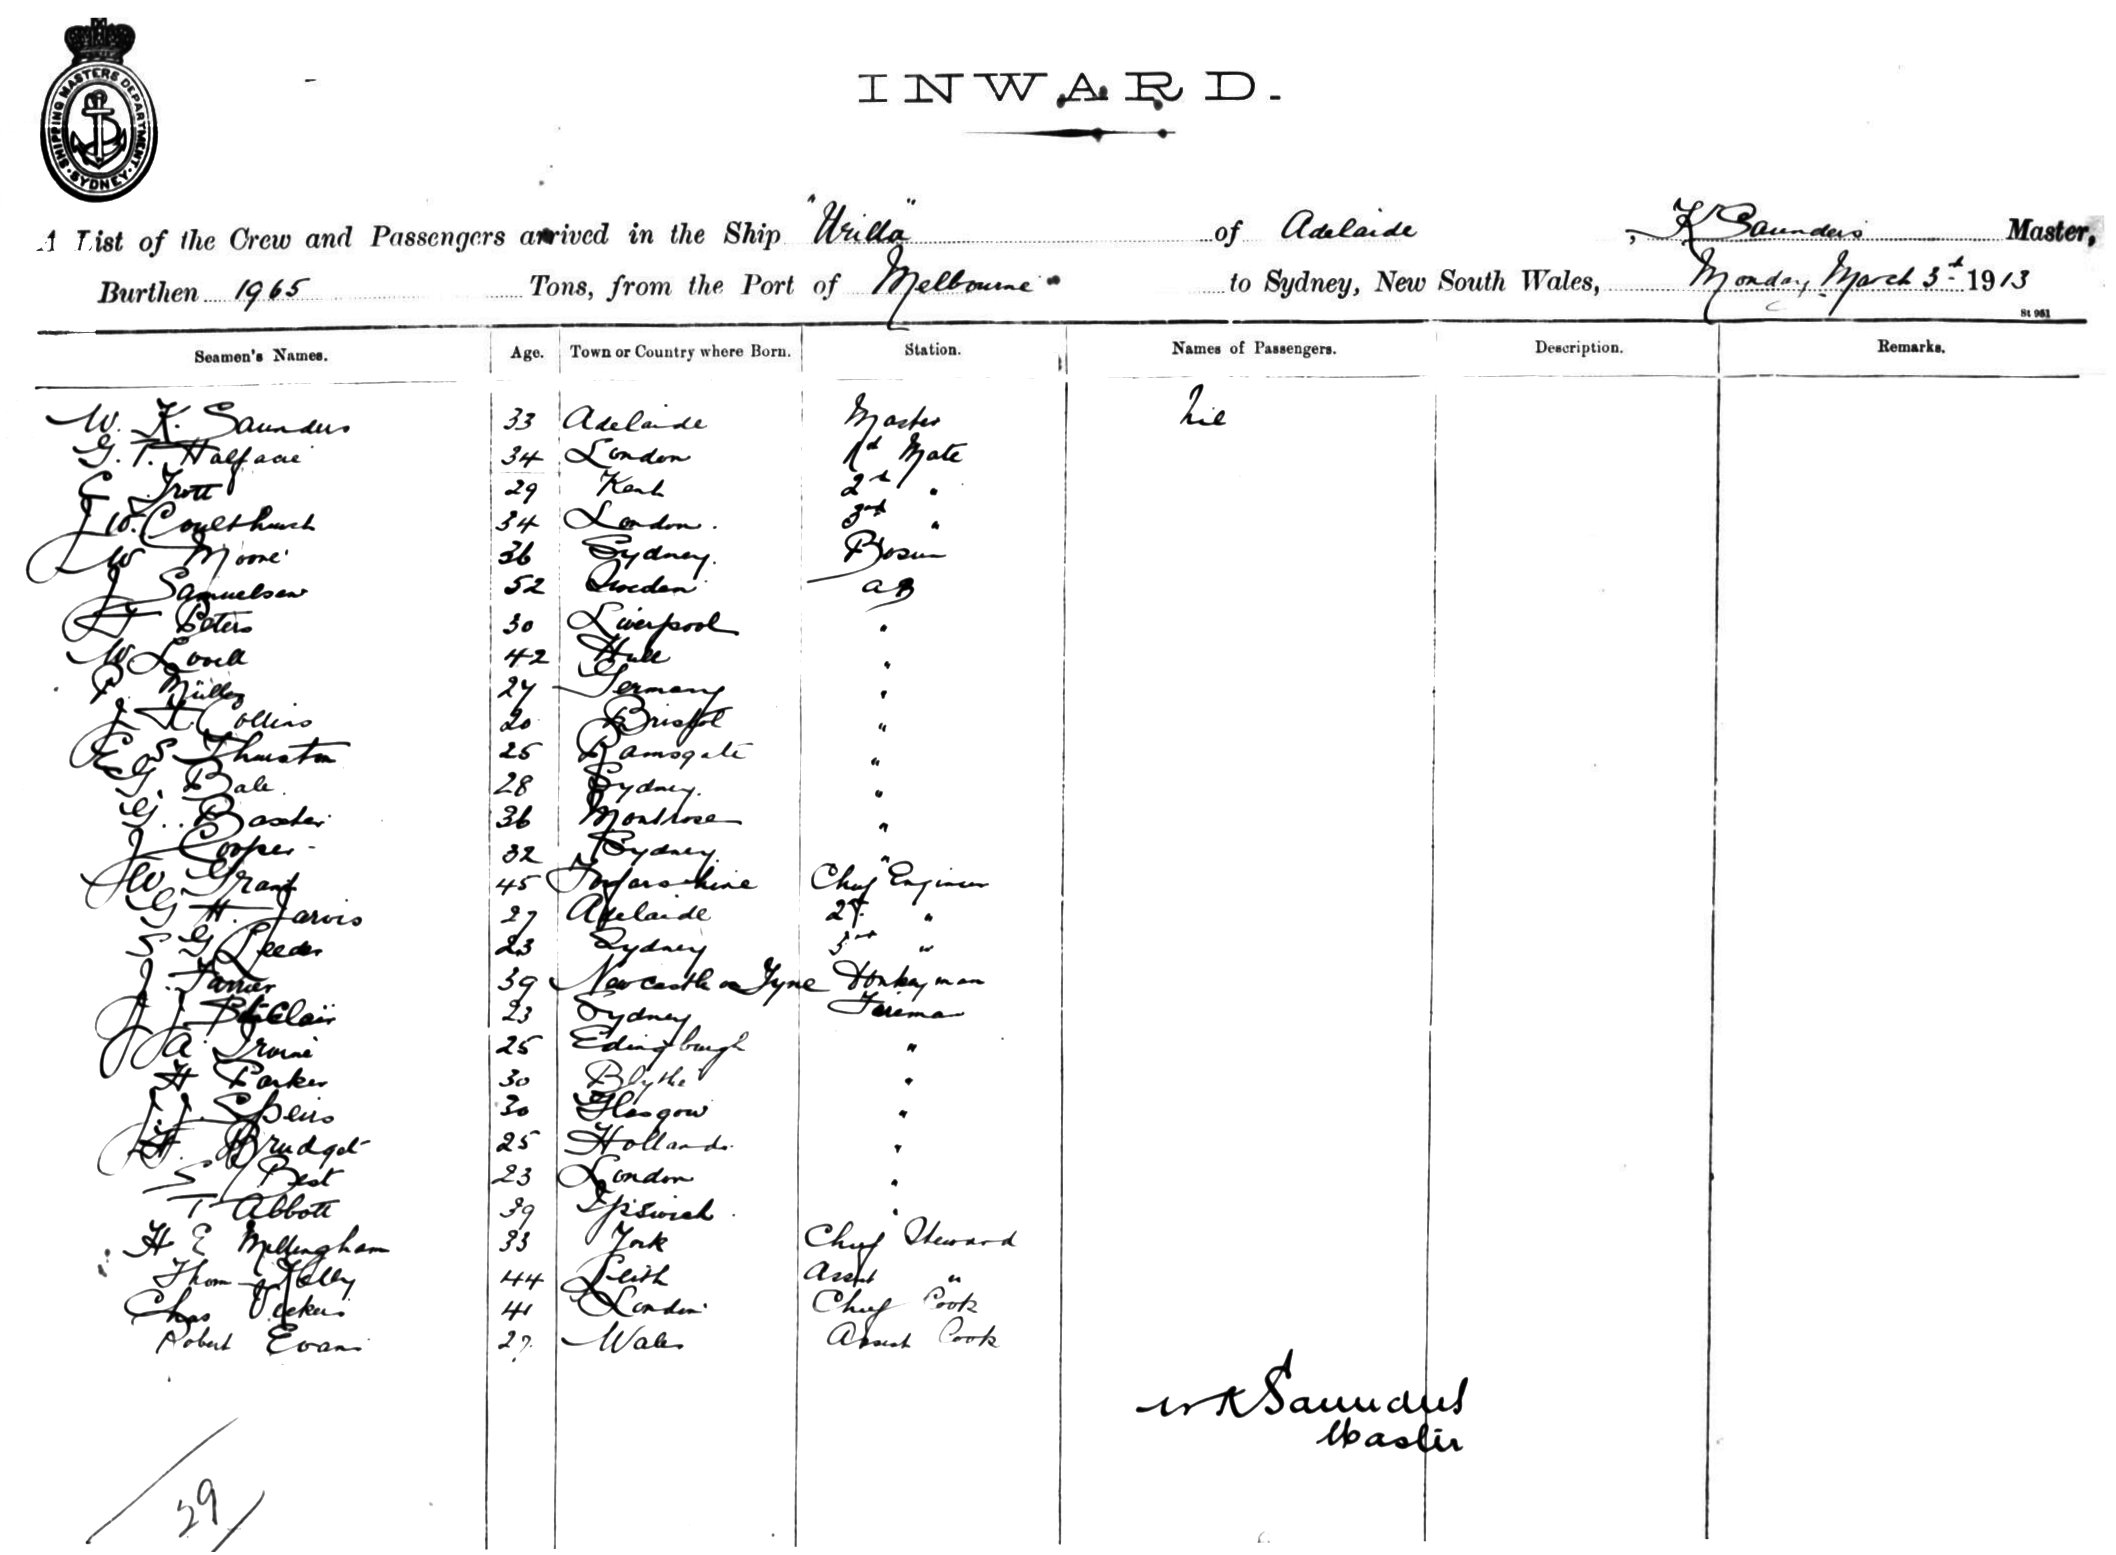 SHIPPING MASTERS DEPARTMENT · SYDNEY ·
INWARD.
A List of the Crew and Passengers arrived in the Ship "Urilla" of Adelaide, K Saunders Master,
Burthen 1965 Tons, from the Port of Melbourne to Sydney, New South Wales, Monday, March 3rd 1913
St 961
Seamen's Names. Age. Town or Country where Born. Station. Names of Passengers. Description. Remarks.
W. K. Saunders 33 Adelaide Master Nil
G. T. Halfacre 34 London 1st Mate
C Trott 29 Kent 2nd "
J W. Coulthurst 34 London. 3rd "
W Moore 36 Sydney. Bosun
J Samuelsen 52 Sweden AB
H Peters 30 Liverpool "
W Lovell 42 Hull "
P. Müller 27 Germany "
J K Collins 20 Bristol "
E S Thurston 25 Ramsgate "
G Bale. 28 Sydney. "
G. Baxter 36 Montrose "
J Cooper 32 Sydney. "
W Grant 45 Forfarshire Chief Engineer
G H. Jarvis 27 Adelaide 2nd "
S G Leeder 23 Sydney 3rd "
J. Farrier 39 Newcastle on Tyne Donkeyman
J J. StClair 23 Sydney Fireman
A Irvine 25 Edingburgh "
H Parker 30 Blythe "
J. J. Speirs 30 Glasgow "
H. Brudget 25 Holland. "
S Best 23 London "
T Abbott 39 Ipswich. "
H E Millingham 33 York Chief Steward
Thom Kelly 44 Leith Assist "
Chas Vickers 41 London Chief Cook
Robert Evans 27. Wales Assist Cook
W K Saunders
Master
29